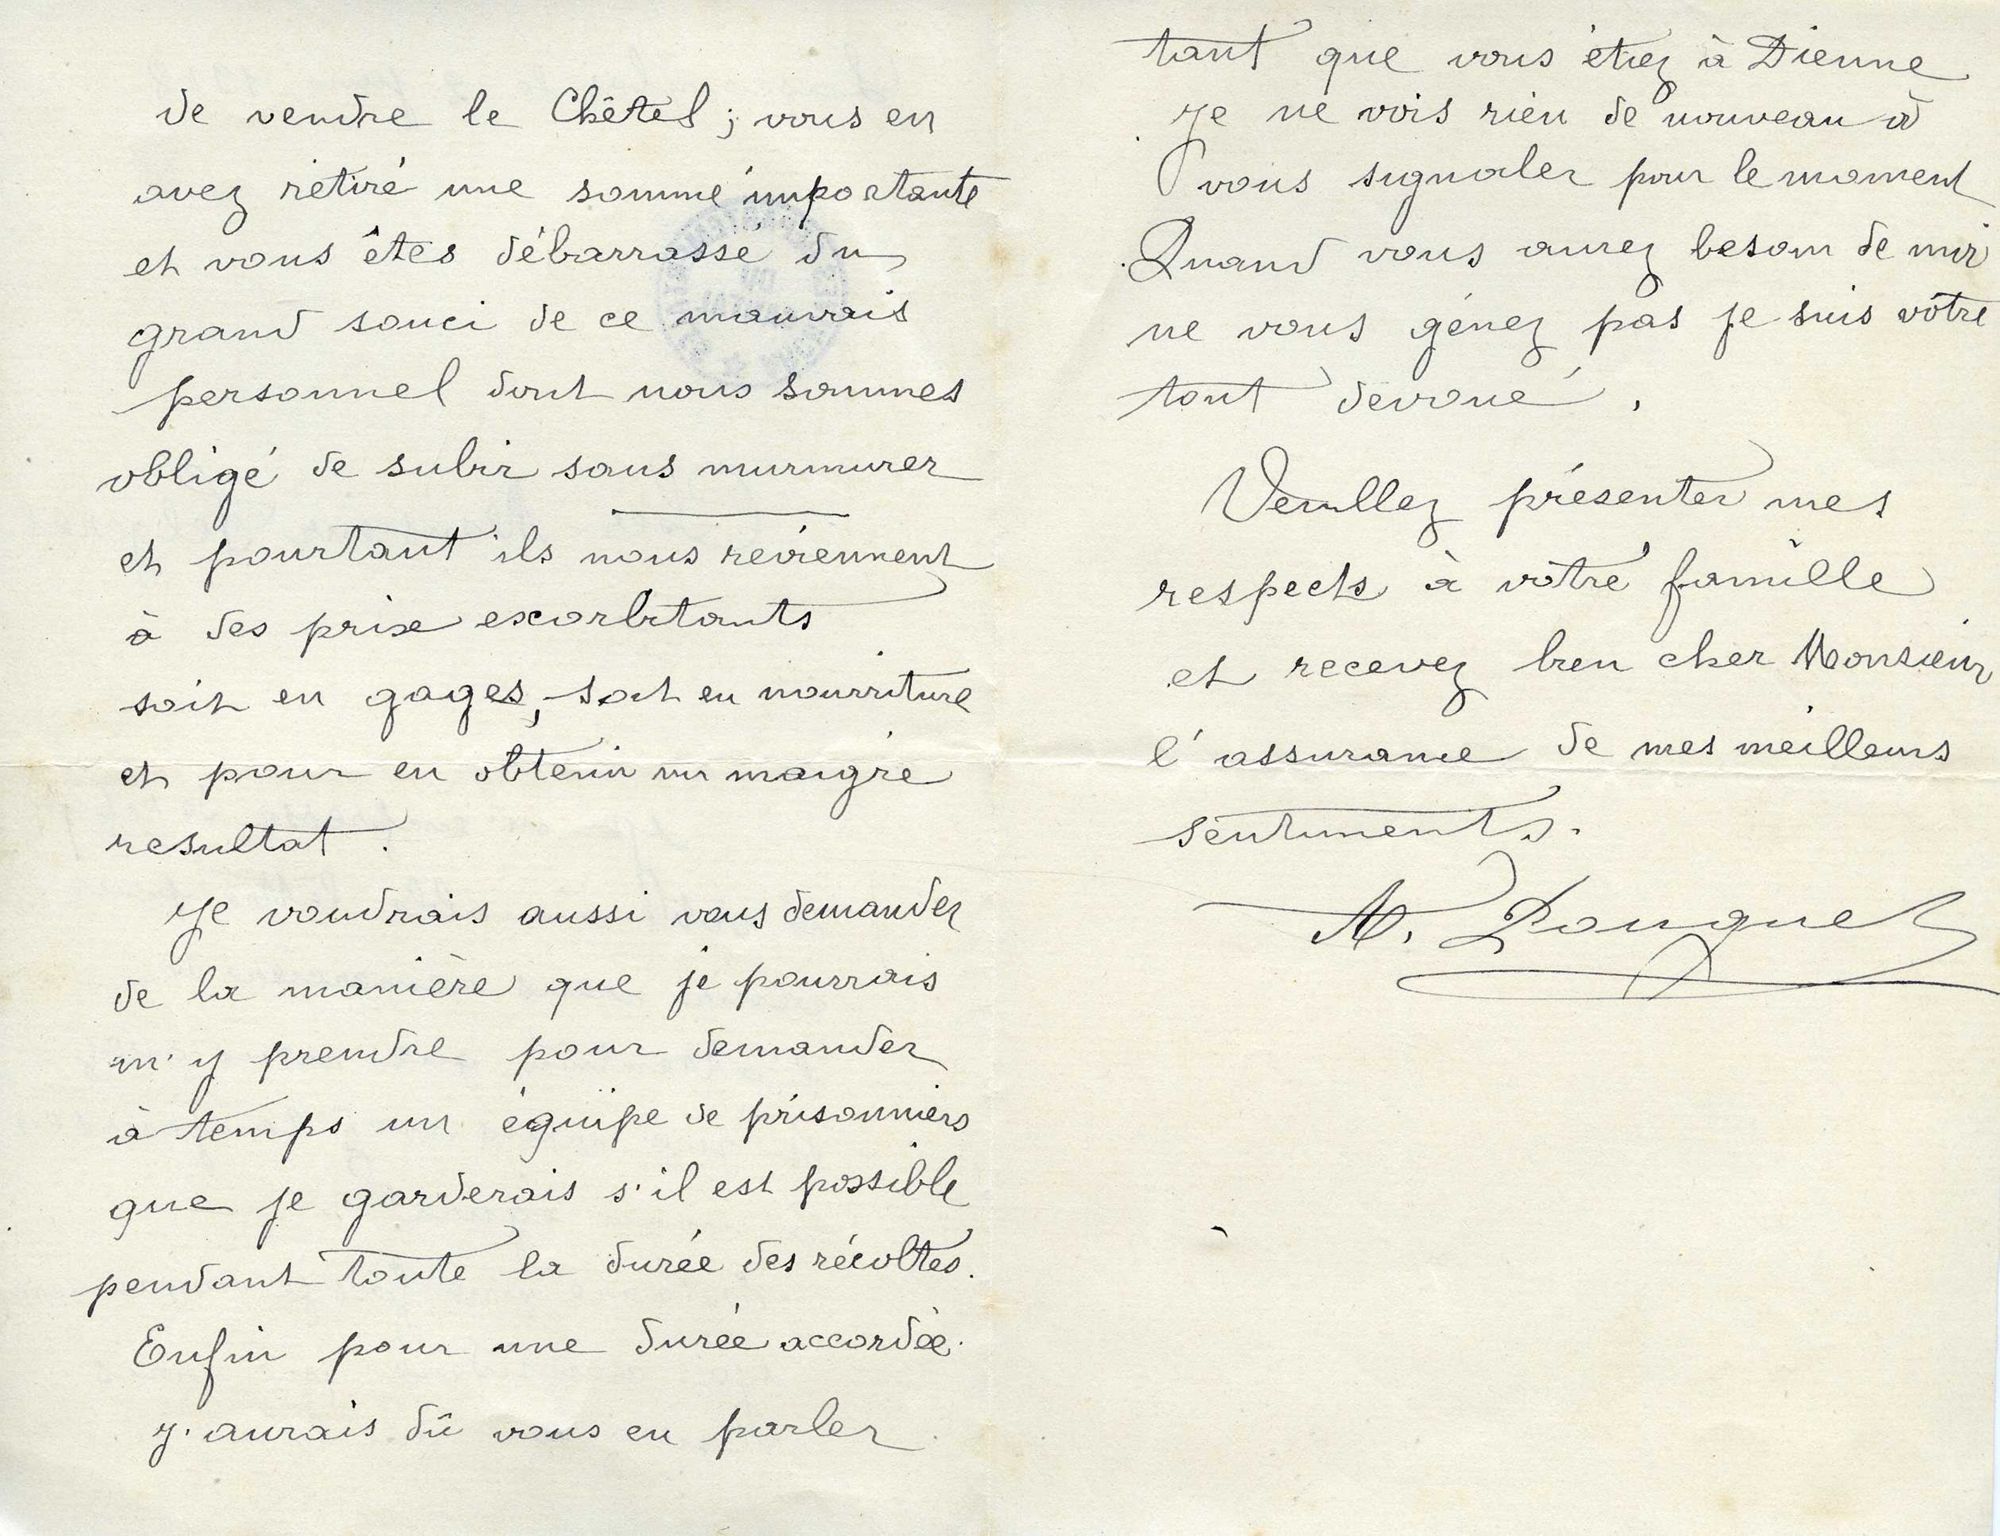 de vendre le Chêtel ; vous en
avez retiré une somme importante
et vous êtes débarrassé du
grand souci de ce mauvais
personnel dont nous sommes
obligé de subir sans murmurer
et pourtant ils nous reviennent
à des prix exorbitants
soit en gages, soit en nourriture
et pour en obtenir un maigre
resultat.
Je voudrais aussi vous demander
de la manière que je pourrais
m'y prendre pour demander
à temps un équipe de prisonniers
que je garderais s'il est possible
pendant toute la durée des récoltes.
Enfin pour une durée accordée.
J'aurais dû vous en parler
tant que vous étiez à Dienne
Je ne vois rien de nouveau à
vous signaler pour le moment
Quand vous aurez besoin de moi
ne vous génez pas je suis vôtre
tout devoué.
Veuillez présenter mes
respects à vôtre famille
et recevez bien cher Monsieur
l'assurance de mes meilleurs
sentiments.
A. Pouquet